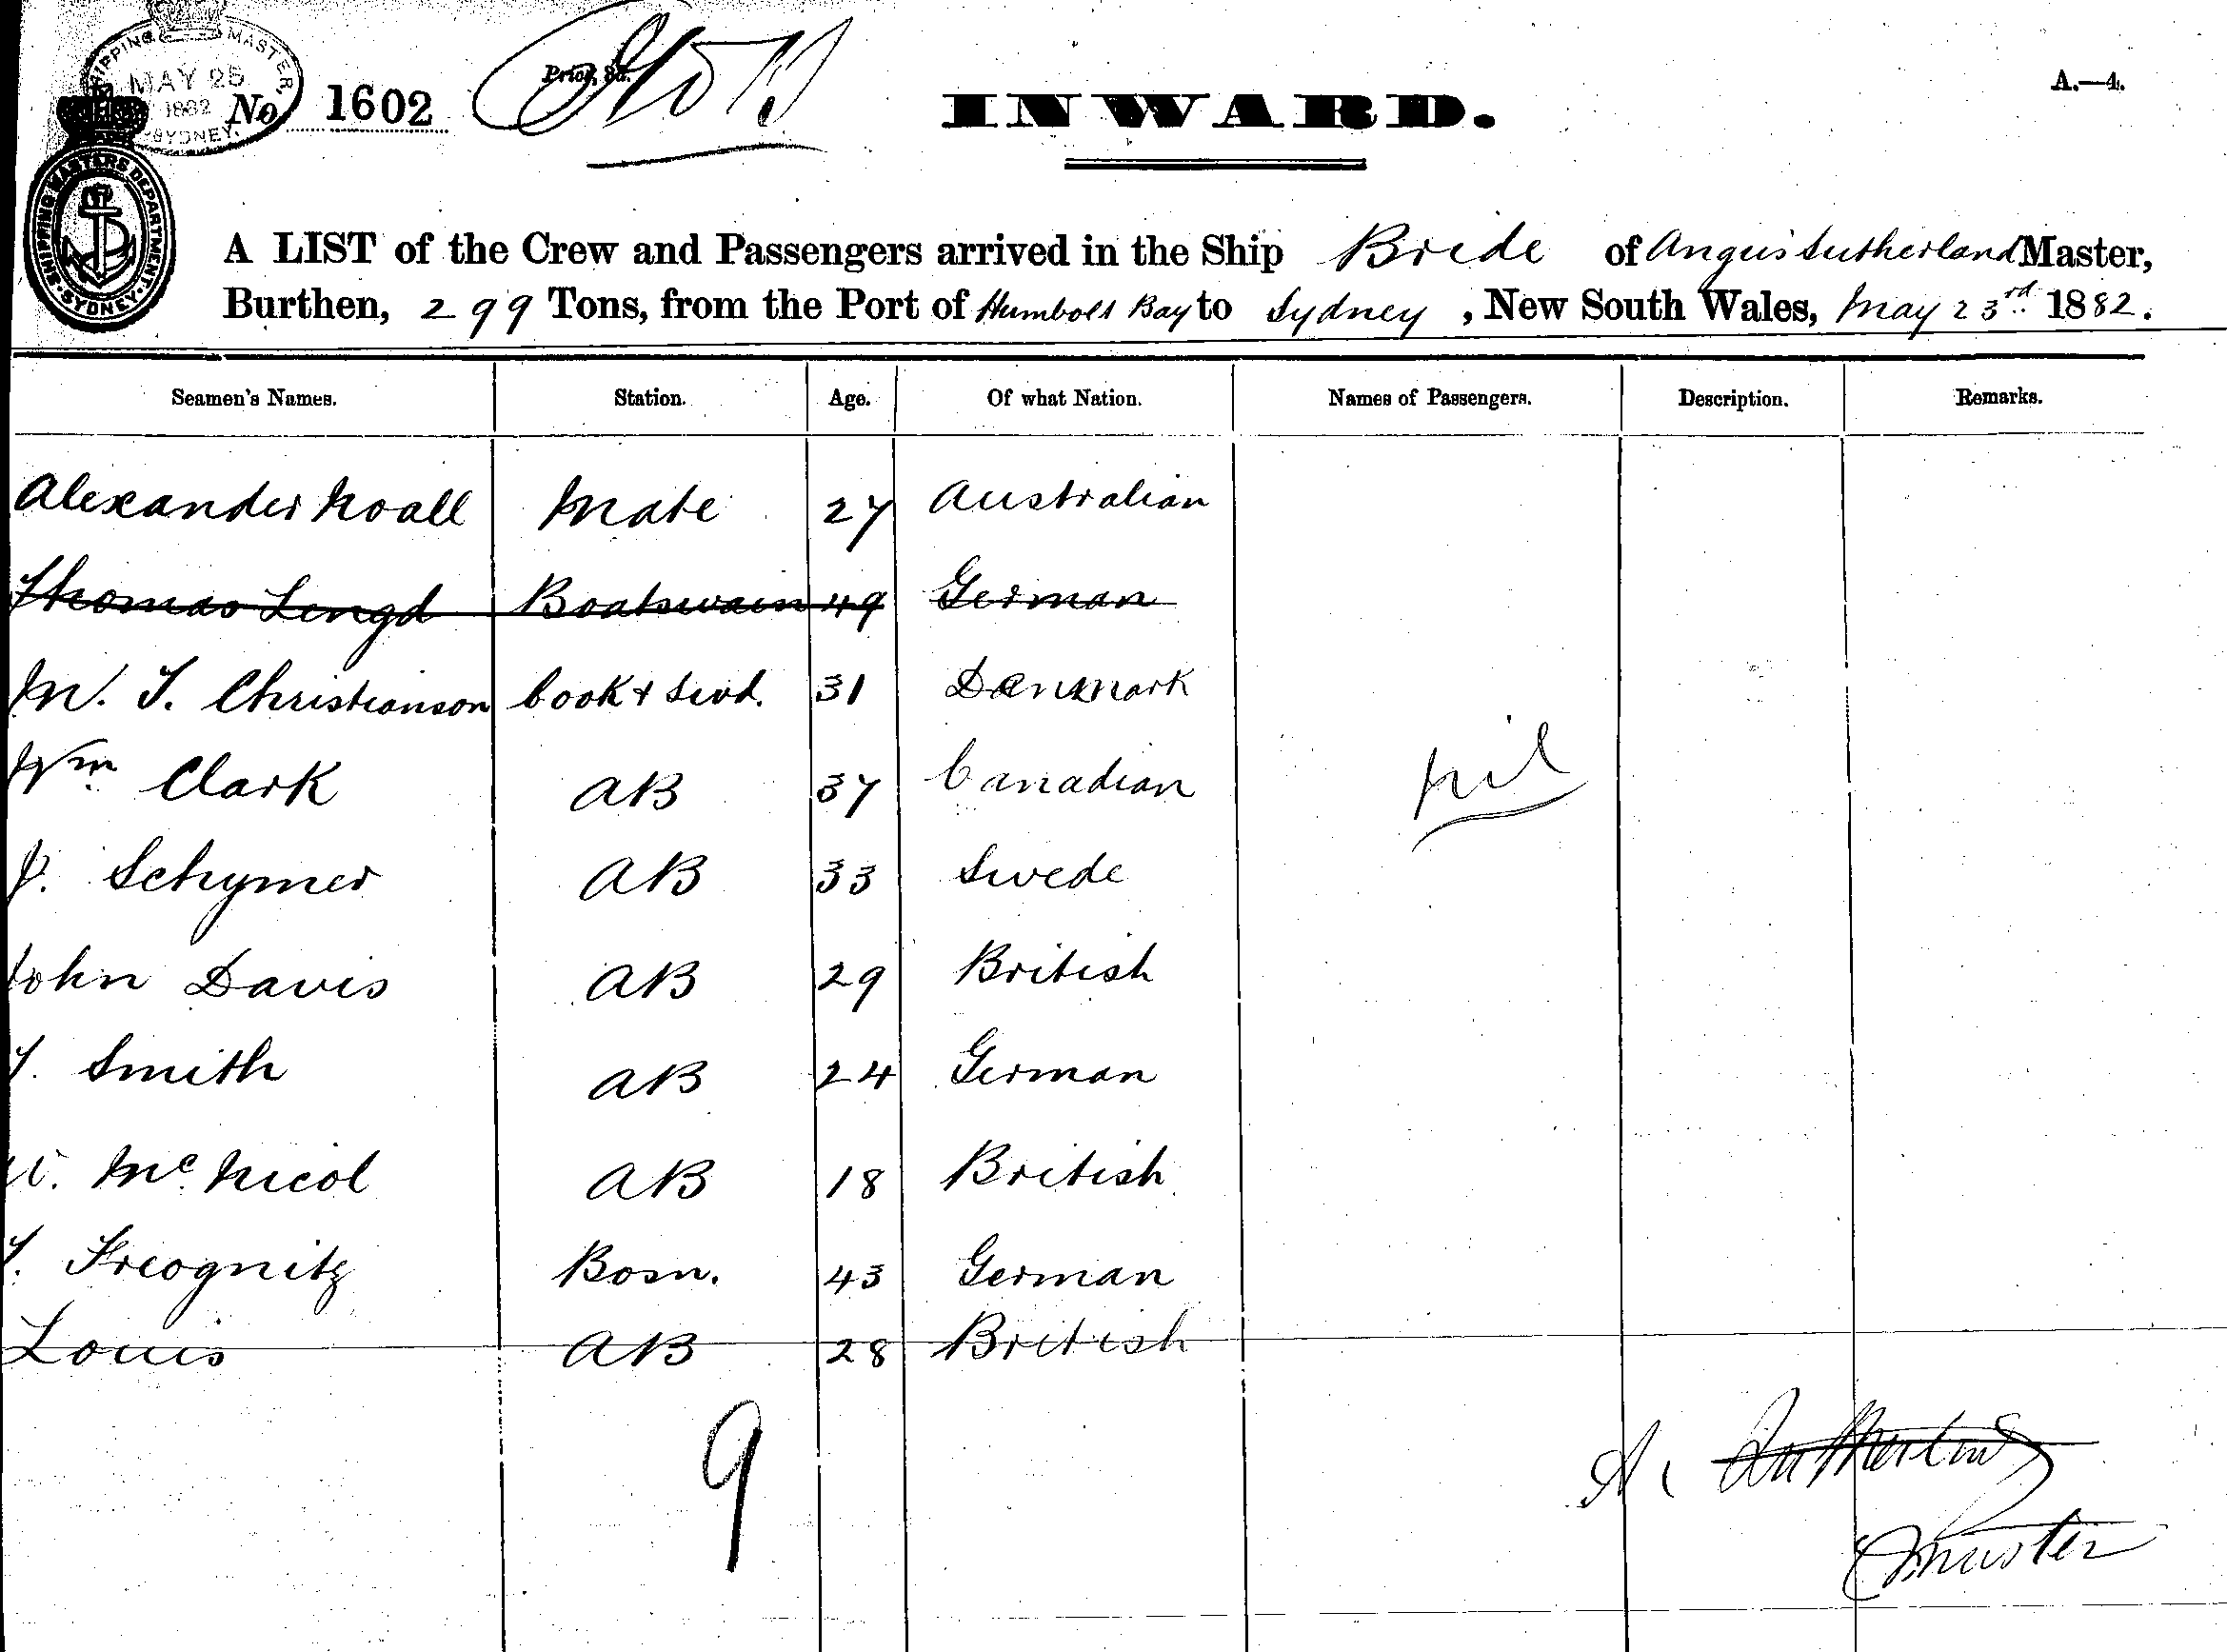 SHIPPING MASTER,
MAY 25
1882
SYDNEY.
No 1602
Price, 3d.
INWARD.
A.—4.
SHIPPING MASTERS DEPARTMENT. SYDNEY.
A LIST of the Crew and Passengers arrived in the Ship Bride of Angus Sutherland Master,
Burthen, 299 Tons, from the Port of Humbolt Bay to Sydney, New South Wales, May 23rd 1882.
Seamen's Names. Station. Age. Of what Nation. Names of Passengers. Description. Remarks.
Alexander Noall Mate 27 Australian
Thomas Lengd Boatswain 49 German
M. T. Christianson Cook & Stwd. 31 Denmark
Wm Clark AB 37 Canadian
nil
J. Schymer AB 33 Swede
John Davis AB 29 British
T. Smith AB 24 German
McNicol AB 18 British
T. Freognitz Bosn. 43 German
Louis AB 28 British
9
A. Sutherland
Master